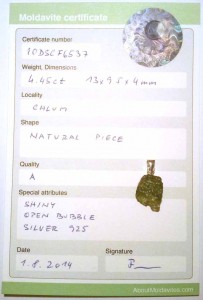 Moldavite certificate
Certificate number
Weight, Dimensions
4.45ct 13x9.5x4mm
Locality
CHLUM
Shape
NATURAL PIECE
Quality
A
Special attributes
SHINY
OPEN BUBBLE
SILVER 925
Date Signature
1.8.2014